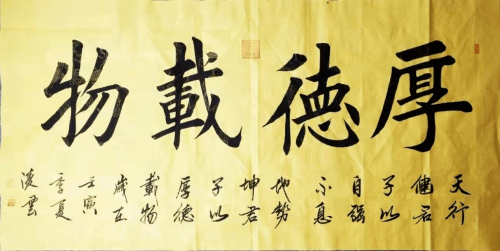 厚德載物
天行
健君
子以
自強
不息
地勢
坤君
子以
厚德
載物
歲在
壬寅
季夏
凌雲